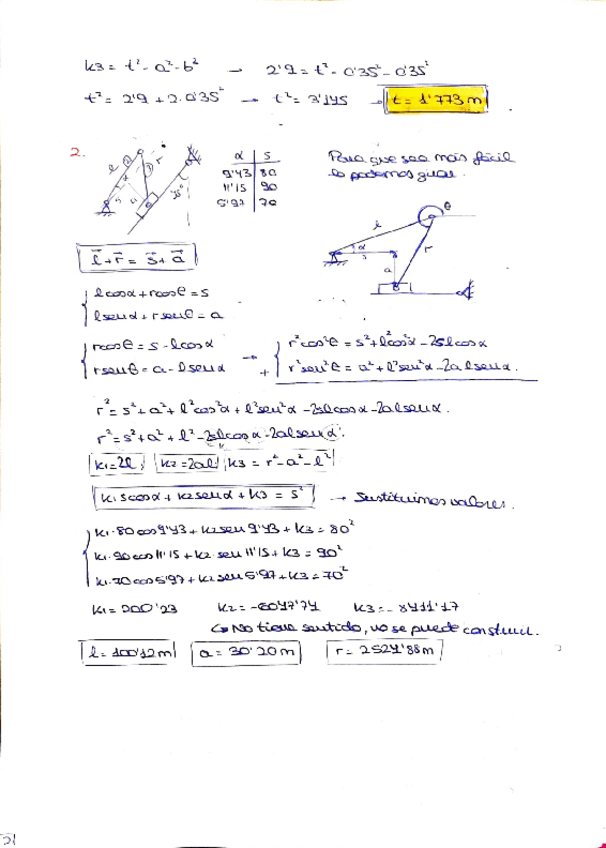 k3 = t² - a² - b² → 2'9 = t² - 0'35² - 0'35²
t² = 2'9 + 2·0'35² → t² = 3'145 → t = 1'773 m
2.
α | s
9'43 | 80
11'15 | 90
5'97 | 70
Para que sea más fácil
lo podemos girar.
l⃗ + r⃗ = s⃗ + a⃗
l cosα + r cosθ = s
l senα + r senθ = a
r cosθ = s - l cosα → r² cos²θ = s² + l² cos²α - 2sl cosα
r senθ = a - l senα + r² sen²θ = a² + l² sen²α - 2a l senα.
r² = s² + a² + l² cos²α + l² sen²α - 2sl cosα - 2al senα.
r² = s² + a² + l² - 2sl cosα - 2al senα.
k1 = 2l, k2 = 2al k3 = r² - a² - l²
k1 s cosα + k2 senα + k3 = s² → Sustituimos valores.
k1·80 cos 9'43 + k2 sen 9'43 + k3 = 80²
k1·90 cos 11'15 + k2·sen 11'15 + k3 = 90²
k1·70 cos 5'97 + k2 sen 5'97 + k3 = 70²
k1 = 200'23 k2 = -6047'74 k3 = -8411'17
↳ No tiene sentido, no se puede construir.
l = 100'12 m a = 30'20 m r = 2524'88 m